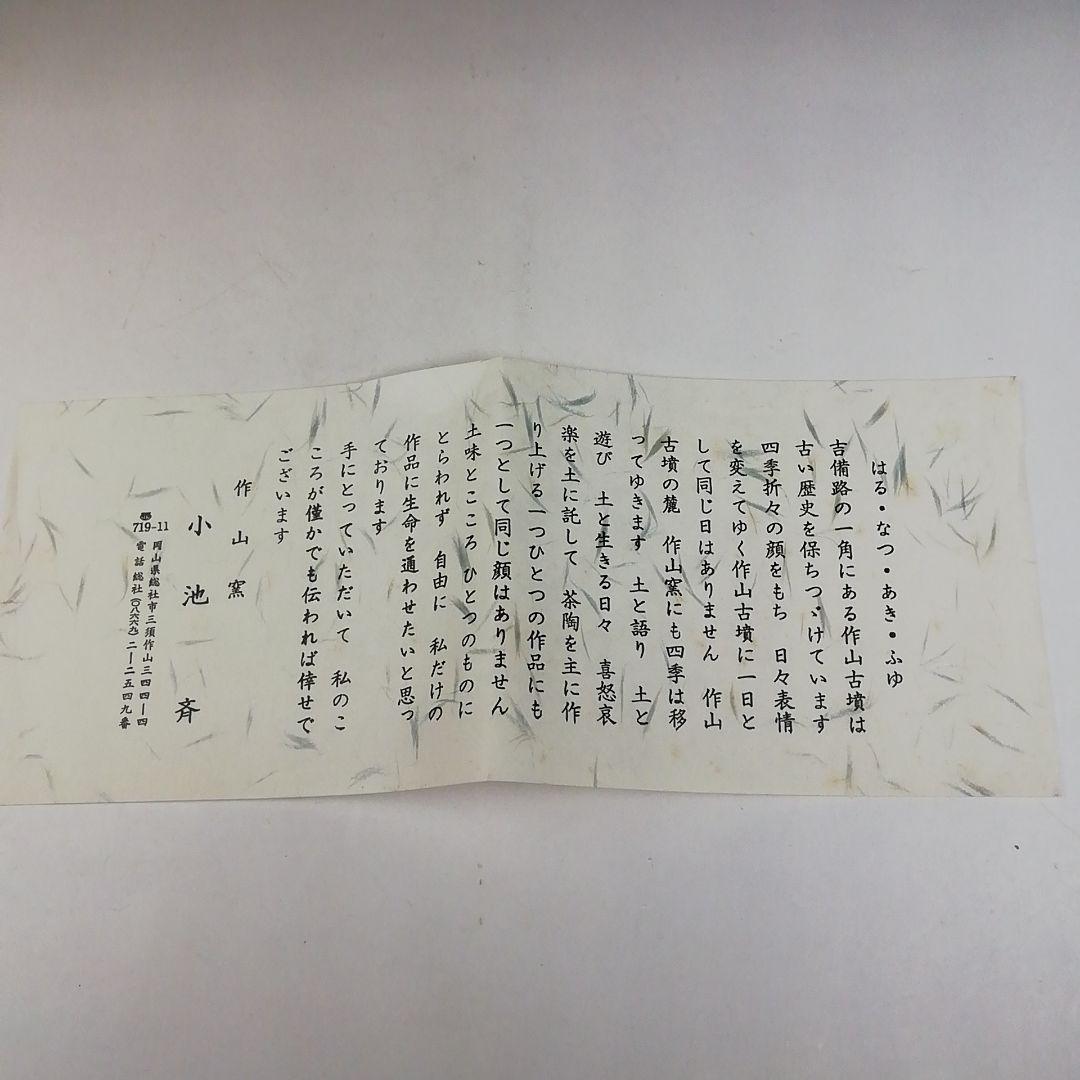 はる・なつ・あき・ふゆ
吉備路の一角にある作山古墳は
古い歴史を保ちつゞけています
四季折々の顔をもち　日々表情
を変えてゆく作山古墳に一日と
して同じ日はありません　作山
古墳の麓　作山窯にも四季は移
ってゆきます　土と語り　土と
遊び　土と生きる日々　喜怒哀
楽を土に託して　茶陶を主に作
り上げる一つひとつの作品にも
一つとして同じ顔はありません
土味とこころ　ひとつのものに
とらわれず　自由に　私だけの
作品に生命を通わせたいと思っ
ております
手にとっていただいて　私のこ
ころが僅かでも伝われば倖せで
ございます
作山窯
小池　斉
719-11　岡山県総社市三須作山三四四ー四
電話総社(〇八六六九)二ー二五四九番